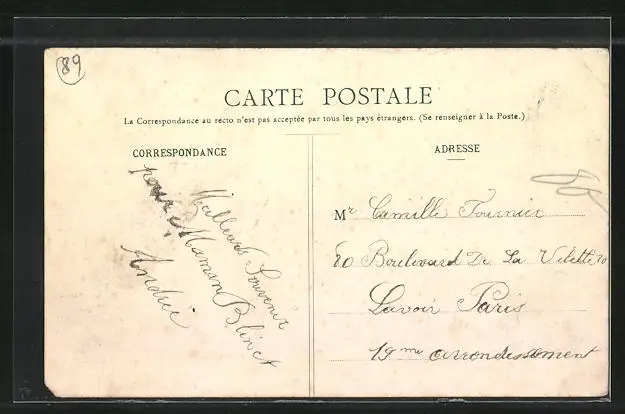 89
CARTE POSTALE
La Correspondance au recto n'est pas acceptée par tous les pays étrangers. (Se renseigner à la Poste.)
CORRESPONDANCE
Meilleurs Souvenir
pour Maman Blinet
Andrée
ADRESSE
Mr Camille Fournier
80 Boulevard De La Vilette
Lavoir Paris
19me arrondissement